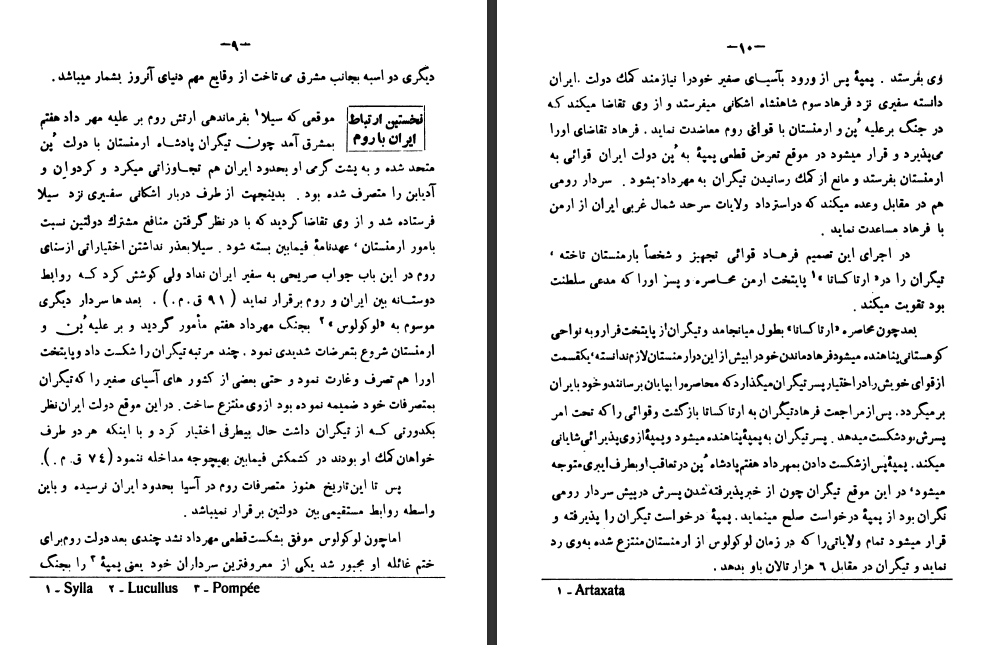 -۹-
دیگری دو اسبه بجانب مشرق می تاخت از وقایع مهم دنیای آنروز بشمار میباشد .
نخستین ارتباط
ایران با روم
موقعی که سیلا۱ بفرماندهی ارتش روم بر علیه مهر داد هفتم
بمشرق آمد چون تیگران پادشاه ارمنستان با دولت پُن
متحد شده و به پشت گرمی او بحدود ایران هم تجاوزاتی میکرد و کردوان و
آدیابن را متصرف شده بود . بدینجهت از طرف دربار اشکانی سفیری نزد سیلا
فرستاده شد و از وی تقاضا گردید که با در نظر گرفتن منافع مشترك دولتین نسبت
بامور ارمنستان ، عهدنامهٔ فیمابین بسته شود . سیلا بعذر نداشتن اختیاراتی از سنای
روم در این باب جواب صریحی به سفیر ایران نداد ولی کوشش کرد که روابط
دوستانه بین ایران و روم برقرار نماید ( ۹۱ ق.م. ) . بعدها سردار دیگری
موسوم به «لوکولوس» ۲ بجنگ مهرداد هفتم مأمور گردید و بر علیه پُن و
ارمنستان شروع بتعرضات شدیدی نمود . چند مرتبه تیگران را شکست داد و پایتخت
اورا هم تصرف و غارت نمود و حتی بعضی از کشور های آسیای صغیر را که تیگران
بمتصرفات خود ضمیمه نموده بود ازوی منتزع ساخت . در این موقع دولت ایران نظر
بکدورتی که از تیگران داشت حال بیطرفی اختیار کرد و با اینکه هر دو طرف
خواهان کمك او بودند در کشمکش فیمابین بهیچوجه مداخله ننمود (۷۴ ق . م . ).
پس تا این تاریخ هنوز متصرفات روم در آسیا بحدود ایران نرسیده و باین
واسطه روابط مستقیمی بین دولتین برقرار نمیباشد .
اما چون لوکولوس موفق بشکست قطعی مهرداد نشد چندی بعد دولت روم برای
ختم غائله او مجبور شد یکی از معروفترین سرداران خود یعنی پمپهٔ ۳ را بجنگ
۱ - Sylla   ۲ - Lucullus   ۳ - Pompée
-۱۰-
وی بفرستد . پمپهٔ پس از ورود بآسیای صغیر خودرا نیازمند کمك دولت ایران
دانسته سفیری نزد فرهاد سوم شاهنشاه اشکانی میفرستد و از وی تقاضا میکند که
در جنگ برعلیه پُن و ارمنستان با قوای روم معاضدت نماید . فرهاد تقاضای اورا
می‌پذیرد و قرار میشود در موقع تعرض قطعی پمپهٔ به پُن دولت ایران قوائی به
ارمنستان بفرستد و مانع از کمك رسانیدن تیگران به مهرداد بشود . سردار رومی
هم در مقابل وعده میکند که در استرداد ولایات سرحد شمال غربی ایران از ارمن
با فرهاد مساعدت نماید .
در اجرای این تصمیم فرهاد قوائی تجهیز و شخصاً بارمنستان تاخته ،
تیگران را در « ارتاکساتا » ۱ پایتخت ارمن محاصره و پسر اورا که مدعی سلطنت
بود تقویت میکند .
بعد چون محاصره «ارتاکساتا» بطول میانجامد و تیگران از پایتخت فرار و به نواحی
کوهستانی پناهنده میشود فرهاد ماندن خود را بیش از این در ارمنستان لازم ندانسته ، یکقسمت
از قوای خویش را در اختیار پسر تیگران میگذارد که محاصره را بپایان برسانند و خود بایران
بر میگردد . پس از مراجعت فرهاد تیگران به ارتاکساتا بازگشت و قوائی را که تحت امر
پسرش بود شکست میدهد . پسر تیگران به پمپهٔ پناهنده میشود و پمپهٔ از وی پذیرائی شایانی
میکند . پمپهٔ پس از شکست دادن بمهرداد هفتم پادشاه پُن در تعاقب او بطرف ایبری متوجه
میشود ، در این موقع تیگران چون از خبر پذیرفته شدن پسرش در پیش سردار رومی
نگران بود از پمپهٔ درخواست صلح مینماید . پمپهٔ درخواست تیگران را پذیرفته و
قرار میشود تمام ولایاتی را که در زمان لوکولوس از ارمنستان منتزع شده به وی رد
نماید و تیگران در مقابل ۶ هزار تالان باو بدهد .
۱ - Artaxata